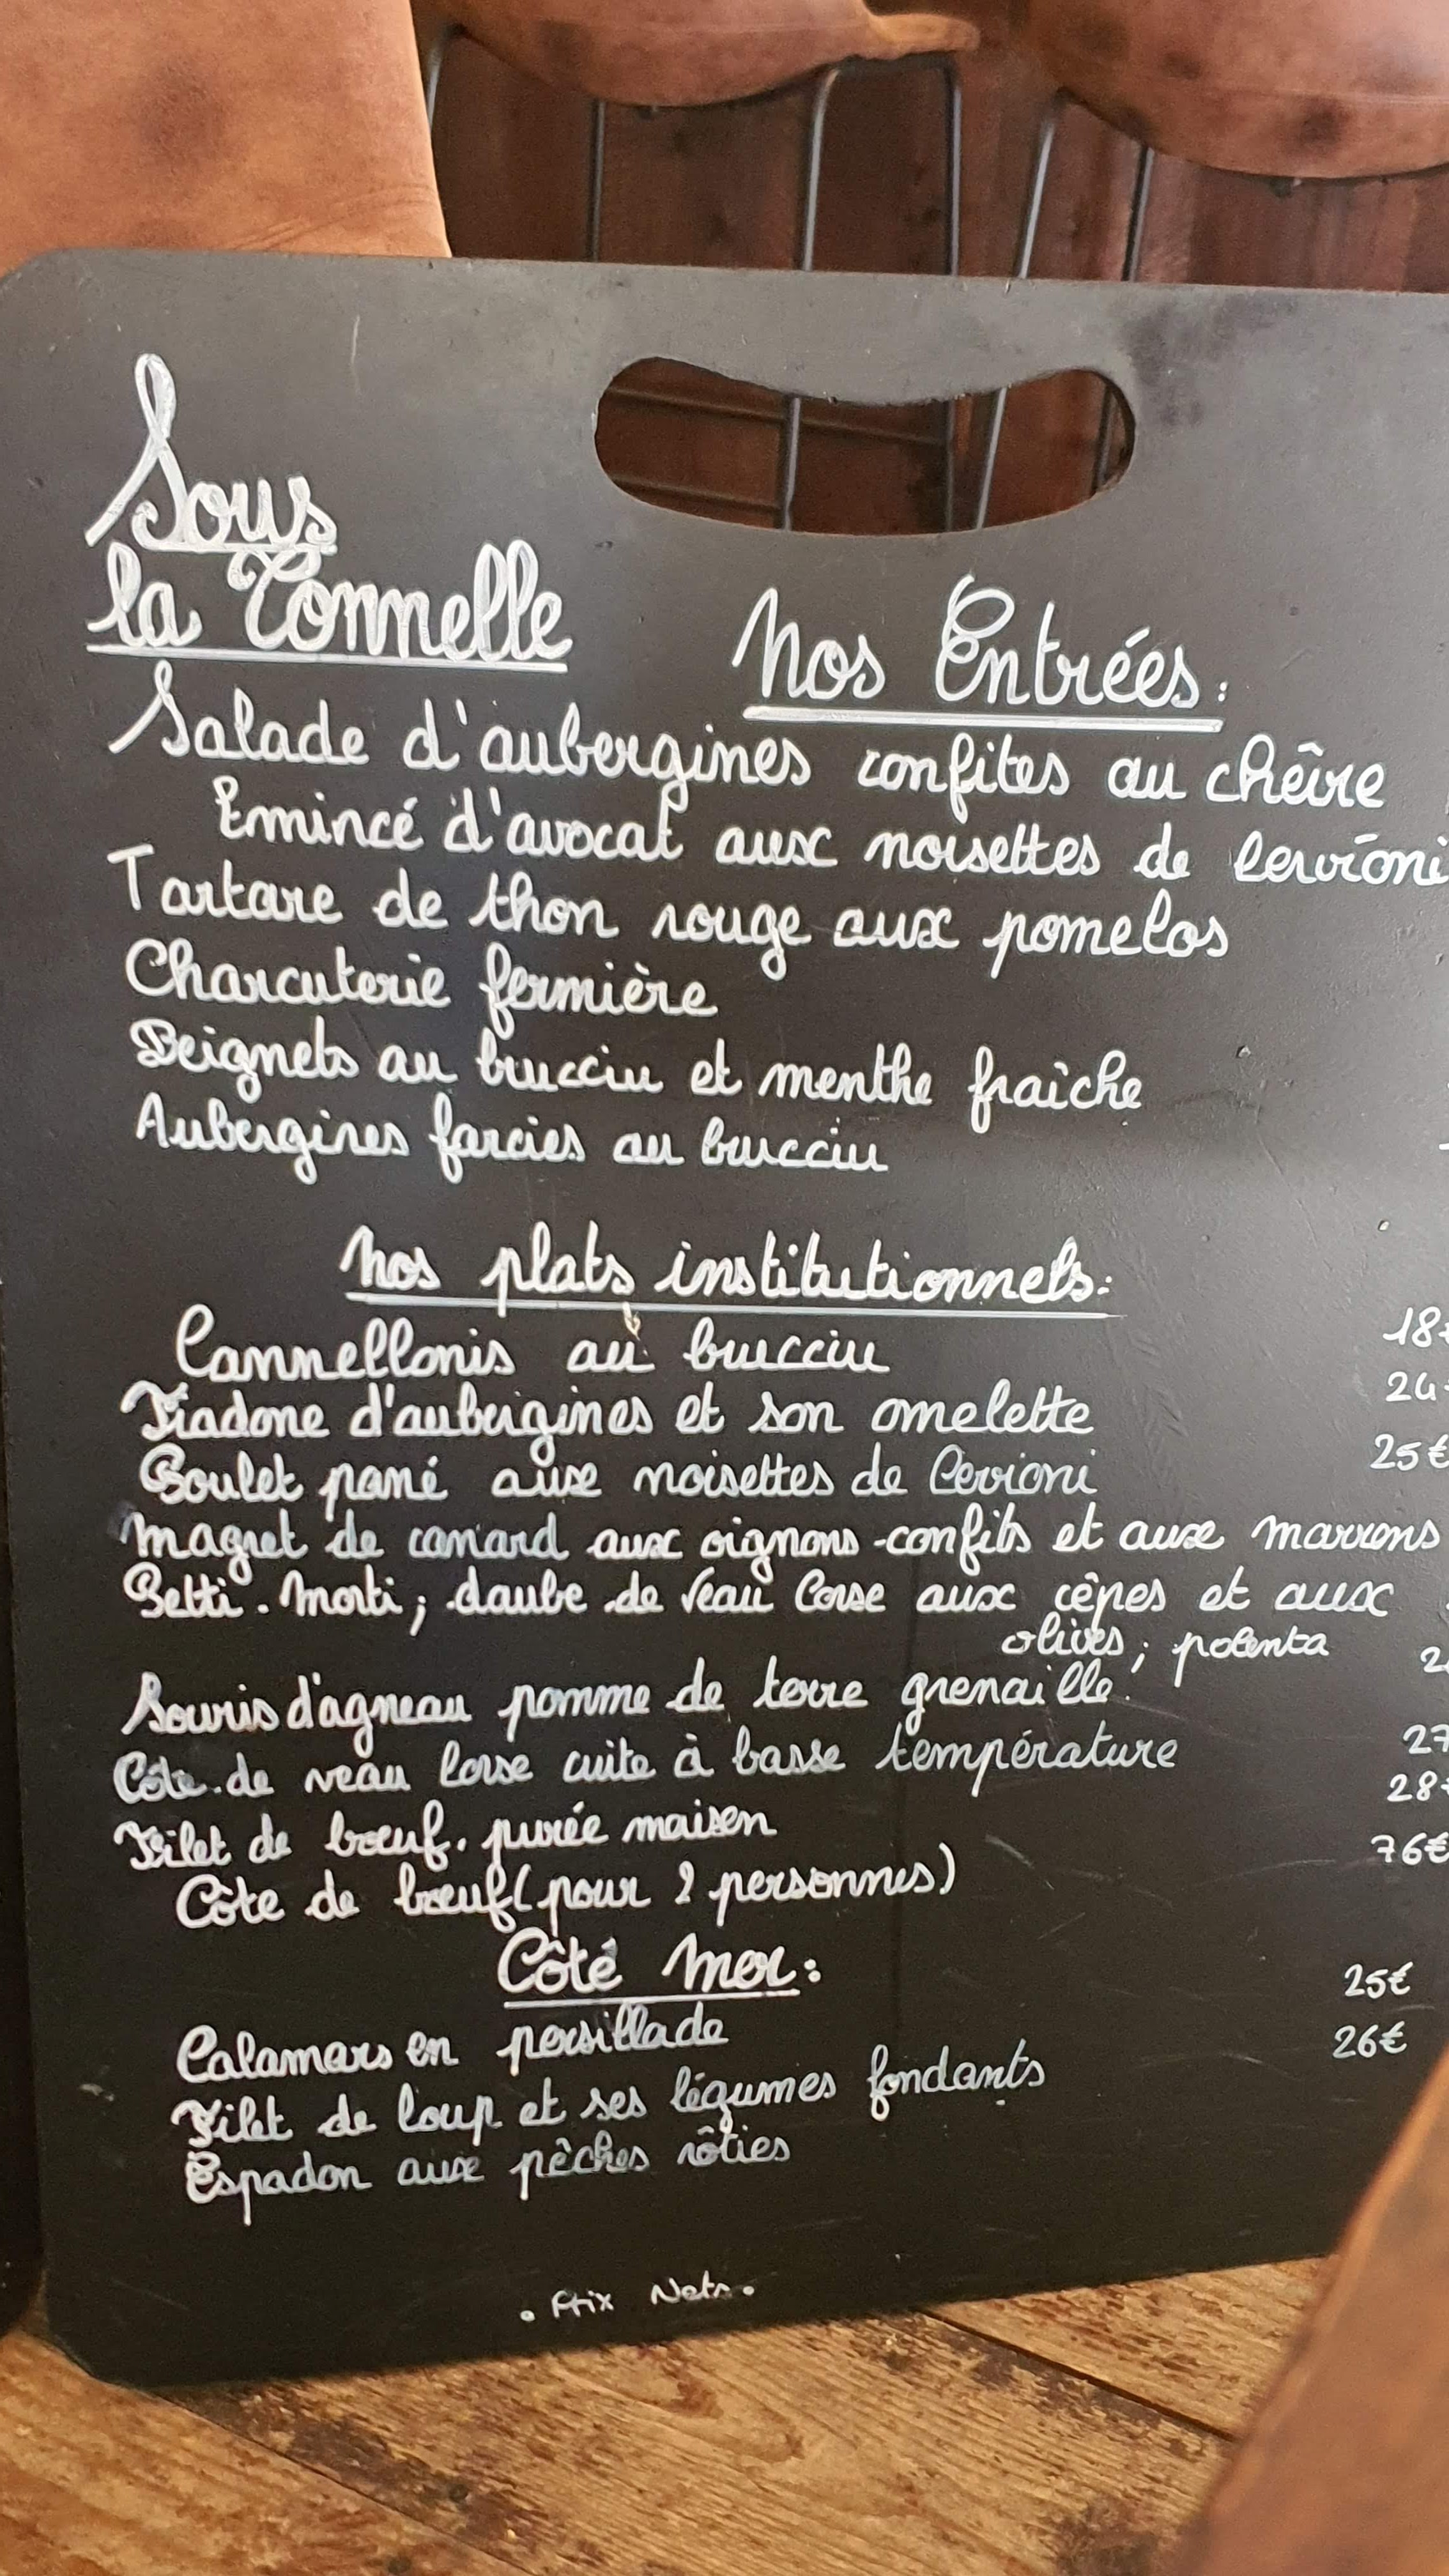 Sous
la Tonnelle
Nos Entrées:
Salade d'aubergines confites au chèvre
Emincé d'avocat aux noisettes de Cervioni
Tartare de thon rouge aux pomelos
Charcuterie fermière
Beignets au brucciu et menthe fraîche
Aubergines farcies au brucciu
Nos plats institutionnels:
Cannellonis au brucciu 18
Fiadone d'aubergines et son omelette 24
Poulet pané aux noisettes de Cervioni 25€
Magret de canard aux oignons confits et aux marrons
Setti. Morti; daube de veau Corse aux cèpes et aux
olives; polenta
Souris d'agneau pomme de terre grenaille. 2
Côte de veau Corse cuite à basse température 27
Filet de bœuf. purée maison 28
Côte de bœuf (pour 2 personnes) 76€
Côté Mer:
Calamars en persillade 25€
Filet de loup et ses légumes fondants 26€
Espadon aux pêches rôties
. Prix Nets.